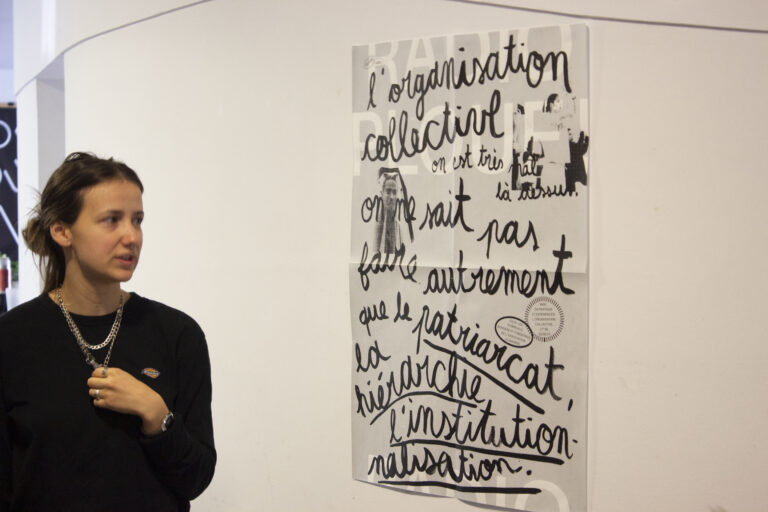 RADIO
l'organisation
collective
on est très mal
là dessus.
on ne sait pas
faire autrement
que le patriarcat,
la
hiérarchie
l'institution-
nalisation.
RADIO
Dickies